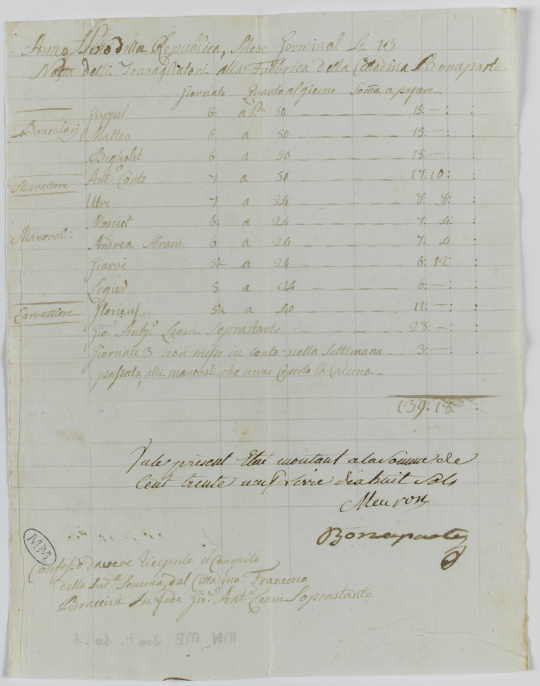 Anno della Republica, Mese Germinal Li 13
Nota delli Travagliatori alla Fabbrica della Cittadina Bonaparte
Giornate Quanto al giorno Soma a pagare
Bancalari 6: a Pi 50 15: —:
Matteo 6 a 50 15: —:
Bigholet 6 a 50 15: —:
Muratore Antº Conte 7 a 50 17: 10:
Utre 7 a 24 8: 8:
Manovali Mosciet 6: a 24 7: 4:
Andrea 6 a 24 7: 4
5½ a 24 6: 12
Legier 5 a 24 6: —:
5½ a 40 11: —:
Gio. Antº Leoni Soprastante 28: —:
Giornate 3 non messe in conto nella Settimana 3: —:
passata, alli manovali che la Calcina
139: 18:
present Etat montant a la somme de
Cent trente neuf Livre dix huit Sols
Meuron
Bonaparte
Confesso davere Ricevuto il Compito
della Sudª Somma dal Cittadino Francesco
Braccini In fede Gio. Antº Leoni Soprastante
MN MB 2007.10.1